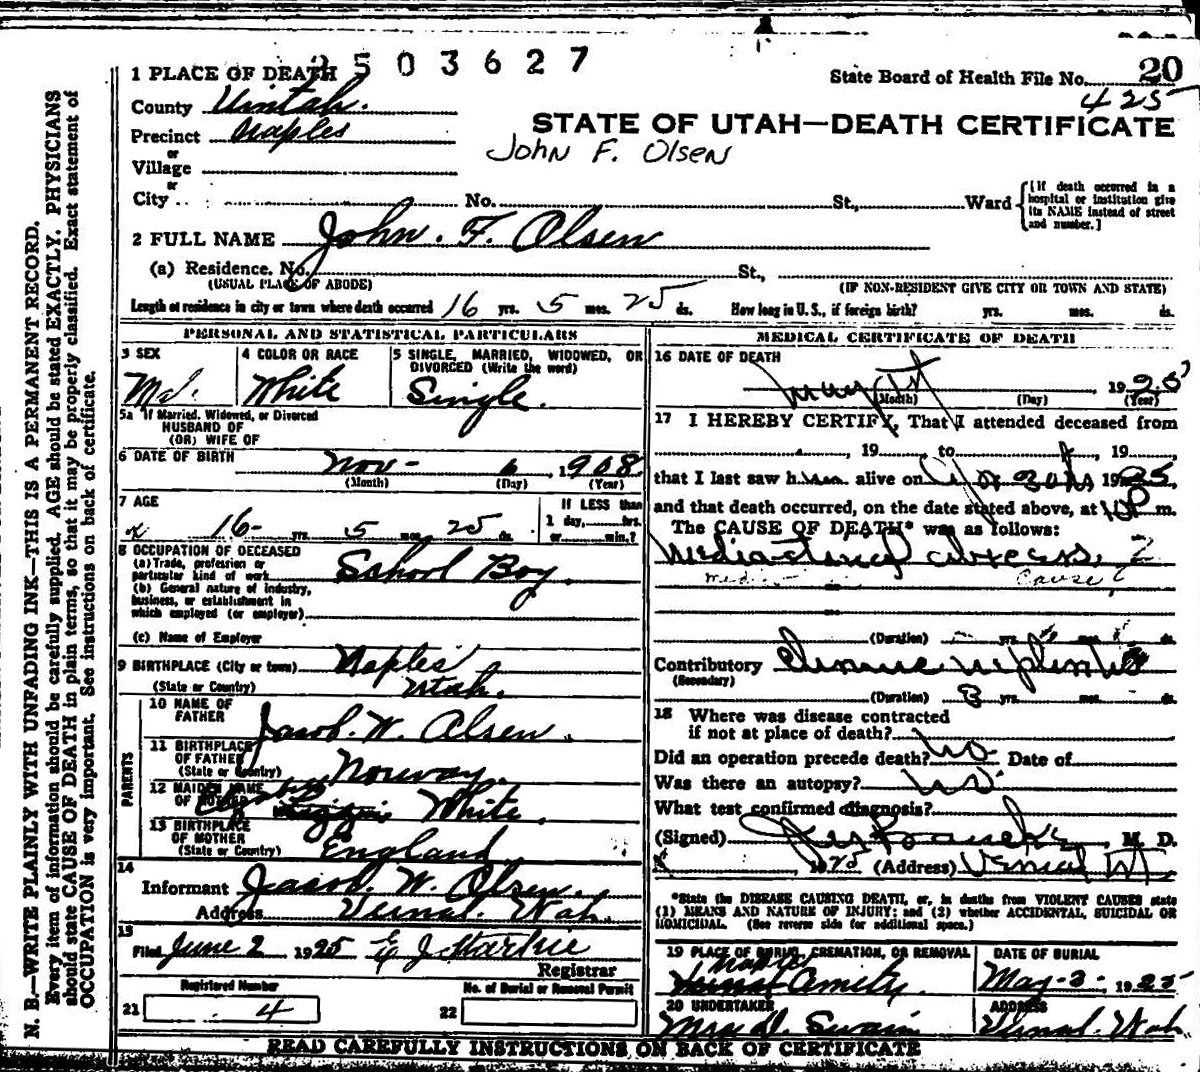 2503627
State Board of Health File No. 20
425
1 PLACE OF DEATH
County Uintah.
Precinct Naples
STATE OF UTAH—DEATH CERTIFICATE
John F. Olsen
or
Village
or
City No. St., Ward [If death occurred in a hospital or institution give its NAME instead of street and number.]
2 FULL NAME John. F. Olsen
(a) Residence. No. St.,
(USUAL PLACE OF ABODE) (IF NON-RESIDENT GIVE CITY OR TOWN AND STATE)
Length of residence in city or town where death occurred 16 yrs. 5 mos. 25 ds. How long in U. S., if foreign birth? yrs. mos. ds.
PERSONAL AND STATISTICAL PARTICULARS
3 SEX 4 COLOR OR RACE 5 SINGLE, MARRIED, WIDOWED, OR
DIVORCED (Write the word)
White Single.
5a If Married, Widowed, or Divorced
HUSBAND OF
(OR) WIFE OF
6 DATE OF BIRTH Nov- 6, 1908
(Month) (Day) (Year)
7 AGE If LESS than
16- yrs. 5 mos. 25 ds. 1 day, hrs.
or min.?
8 OCCUPATION OF DECEASED
(a) Trade, profession or
particular kind of work School Boy.
(b) General nature of industry,
business, or establishment in
which employed (or employer)
(c) Name of Employer
9 BIRTHPLACE (City or town) Naples
(State or Country) Utah.
PARENTS
10 NAME OF
FATHER Jacob. W. Olsen.
11 BIRTHPLACE
OF FATHER
(State or Country) Norway.
12 MAIDEN NAME
OF MOTHER White.
13 BIRTHPLACE
OF MOTHER
(State or Country) England
14
Informant Jacob. W. Olsen.
Address Vernal. Utah.
15
Filed June 2 1925
Registrar
Registered Number No. of Burial or Removal Permit
21 4 22
MEDICAL CERTIFICATE OF DEATH
16 DATE OF DEATH
May 1st, 1925
(Month) (Day) (Year)
17 I HEREBY CERTIFY, That I attended deceased from
, 19 to , 19
that I last saw him alive on Apr 30th 1925,
and that death occurred, on the date stated above, at m.
The CAUSE OF DEATH* was as follows:
Mediastinal abscess, ?
Cause ?
(Duration) yrs. mos. ds.
Contributory Chronic nephritis
(Secondary)
(Duration) 3 yrs. mos. ds.
18 Where was disease contracted
if not at place of death?
Did an operation precede death? no Date of
Was there an autopsy? no.
What test confirmed diagnosis?
(Signed) M. D.
1925 (Address) Vernal Ut
*State the DISEASE CAUSING DEATH, or, in deaths from VIOLENT CAUSES state
(1) MEANS AND NATURE OF INJURY; and (2) whether ACCIDENTAL, SUICIDAL OR
HOMICIDAL. (See reverse side for additional space.)
19 PLACE OF BURIAL, CREMATION, OR REMOVAL DATE OF BURIAL
Naples
May-3- 1925
20 UNDERTAKER ADDRESS
Mrs D. Swain Vernal. Utah
READ CAREFULLY INSTRUCTIONS ON BACK OF CERTIFICATE
N. B.—WRITE PLAINLY WITH UNFADING INK—THIS IS A PERMANENT RECORD.
Every item of information should be carefully supplied. AGE should be stated EXACTLY. PHYSICIANS
should state CAUSE OF DEATH in plain terms, so that it may be properly classified. Exact statement of
OCCUPATION is very important. See instructions on back of certificate.